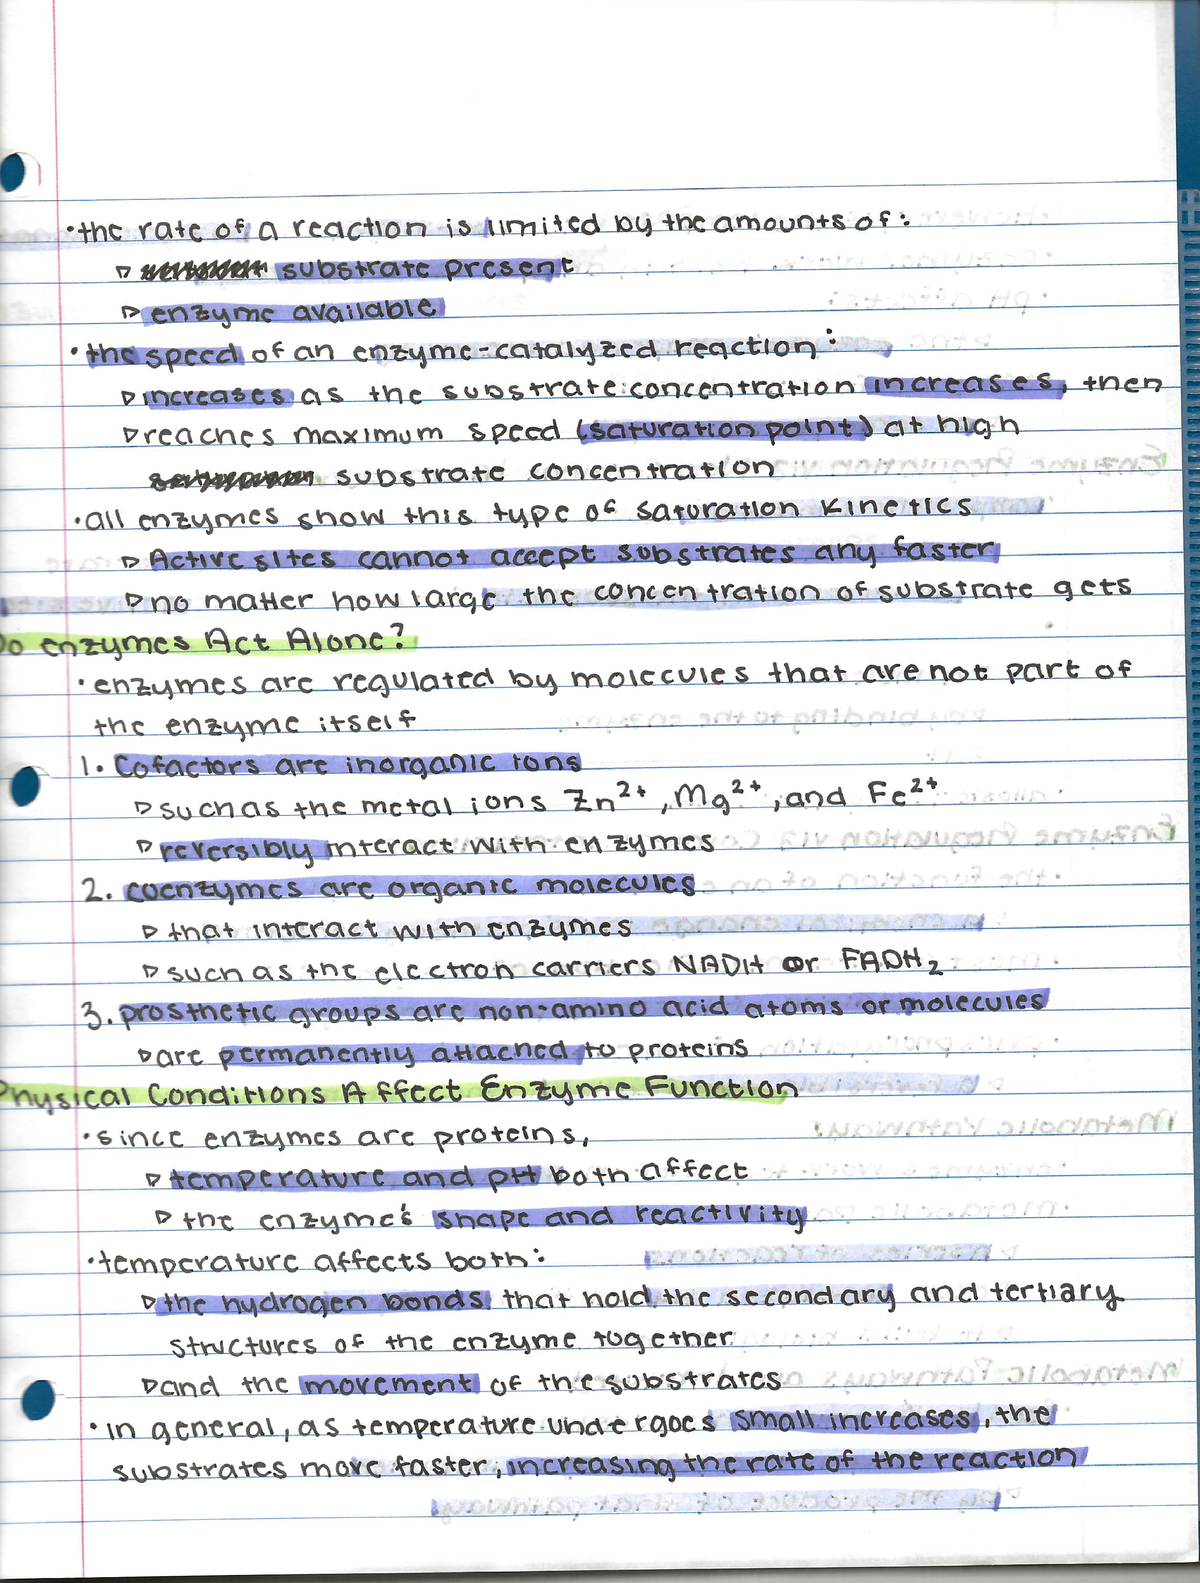 •the rate of a reaction is limited by the amounts of:
▷ substrate present
▷ enzyme available
•the speed of an enzyme-catalyzed reaction:
▷ increases as the substrate concentration increases, then
▷ reaches maximum speed (saturation point) at high
substrate concentration
•all enzymes show this type of saturation kinetics
▷ Active sites cannot accept substrates any faster
▷ no matter how large the concentration of substrate gets
Do enzymes Act Alone?
•enzymes are regulated by molecules that are not part of
the enzyme itself
1. Cofactors are inorganic ions
▷ such as the metal ions Zn²⁺, Mg²⁺, and Fe²⁺
▷ reversibly interact with enzymes
2. coenzymes are organic molecules
▷ that interact with enzymes
▷ such as the electron carriers NADH or FADH₂
3. prosthetic groups are non-amino acid atoms or molecules
▷ are permanently attached to proteins
Physical Conditions Affect Enzyme Function
•since enzymes are proteins,
▷ temperature and pH both affect
▷ the enzyme's shape and reactivity
•temperature affects both:
▷ the hydrogen bonds that hold the secondary and tertiary
structures of the enzyme together
▷ and the movement of the substrates
•in general, as temperature undergoes small increases, the
substrates move faster, increasing the rate of the reaction